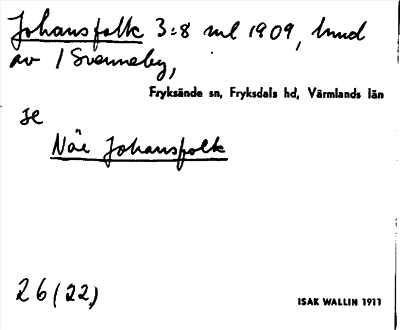 Johansfolk 3:8 ml 1909, lmnd
av 1 Svenneby,
Fryksände sn, Fryksdals hd, Värmlands län
se
Näe Johansfolk
26 (22)
ISAK WALLIN 1911